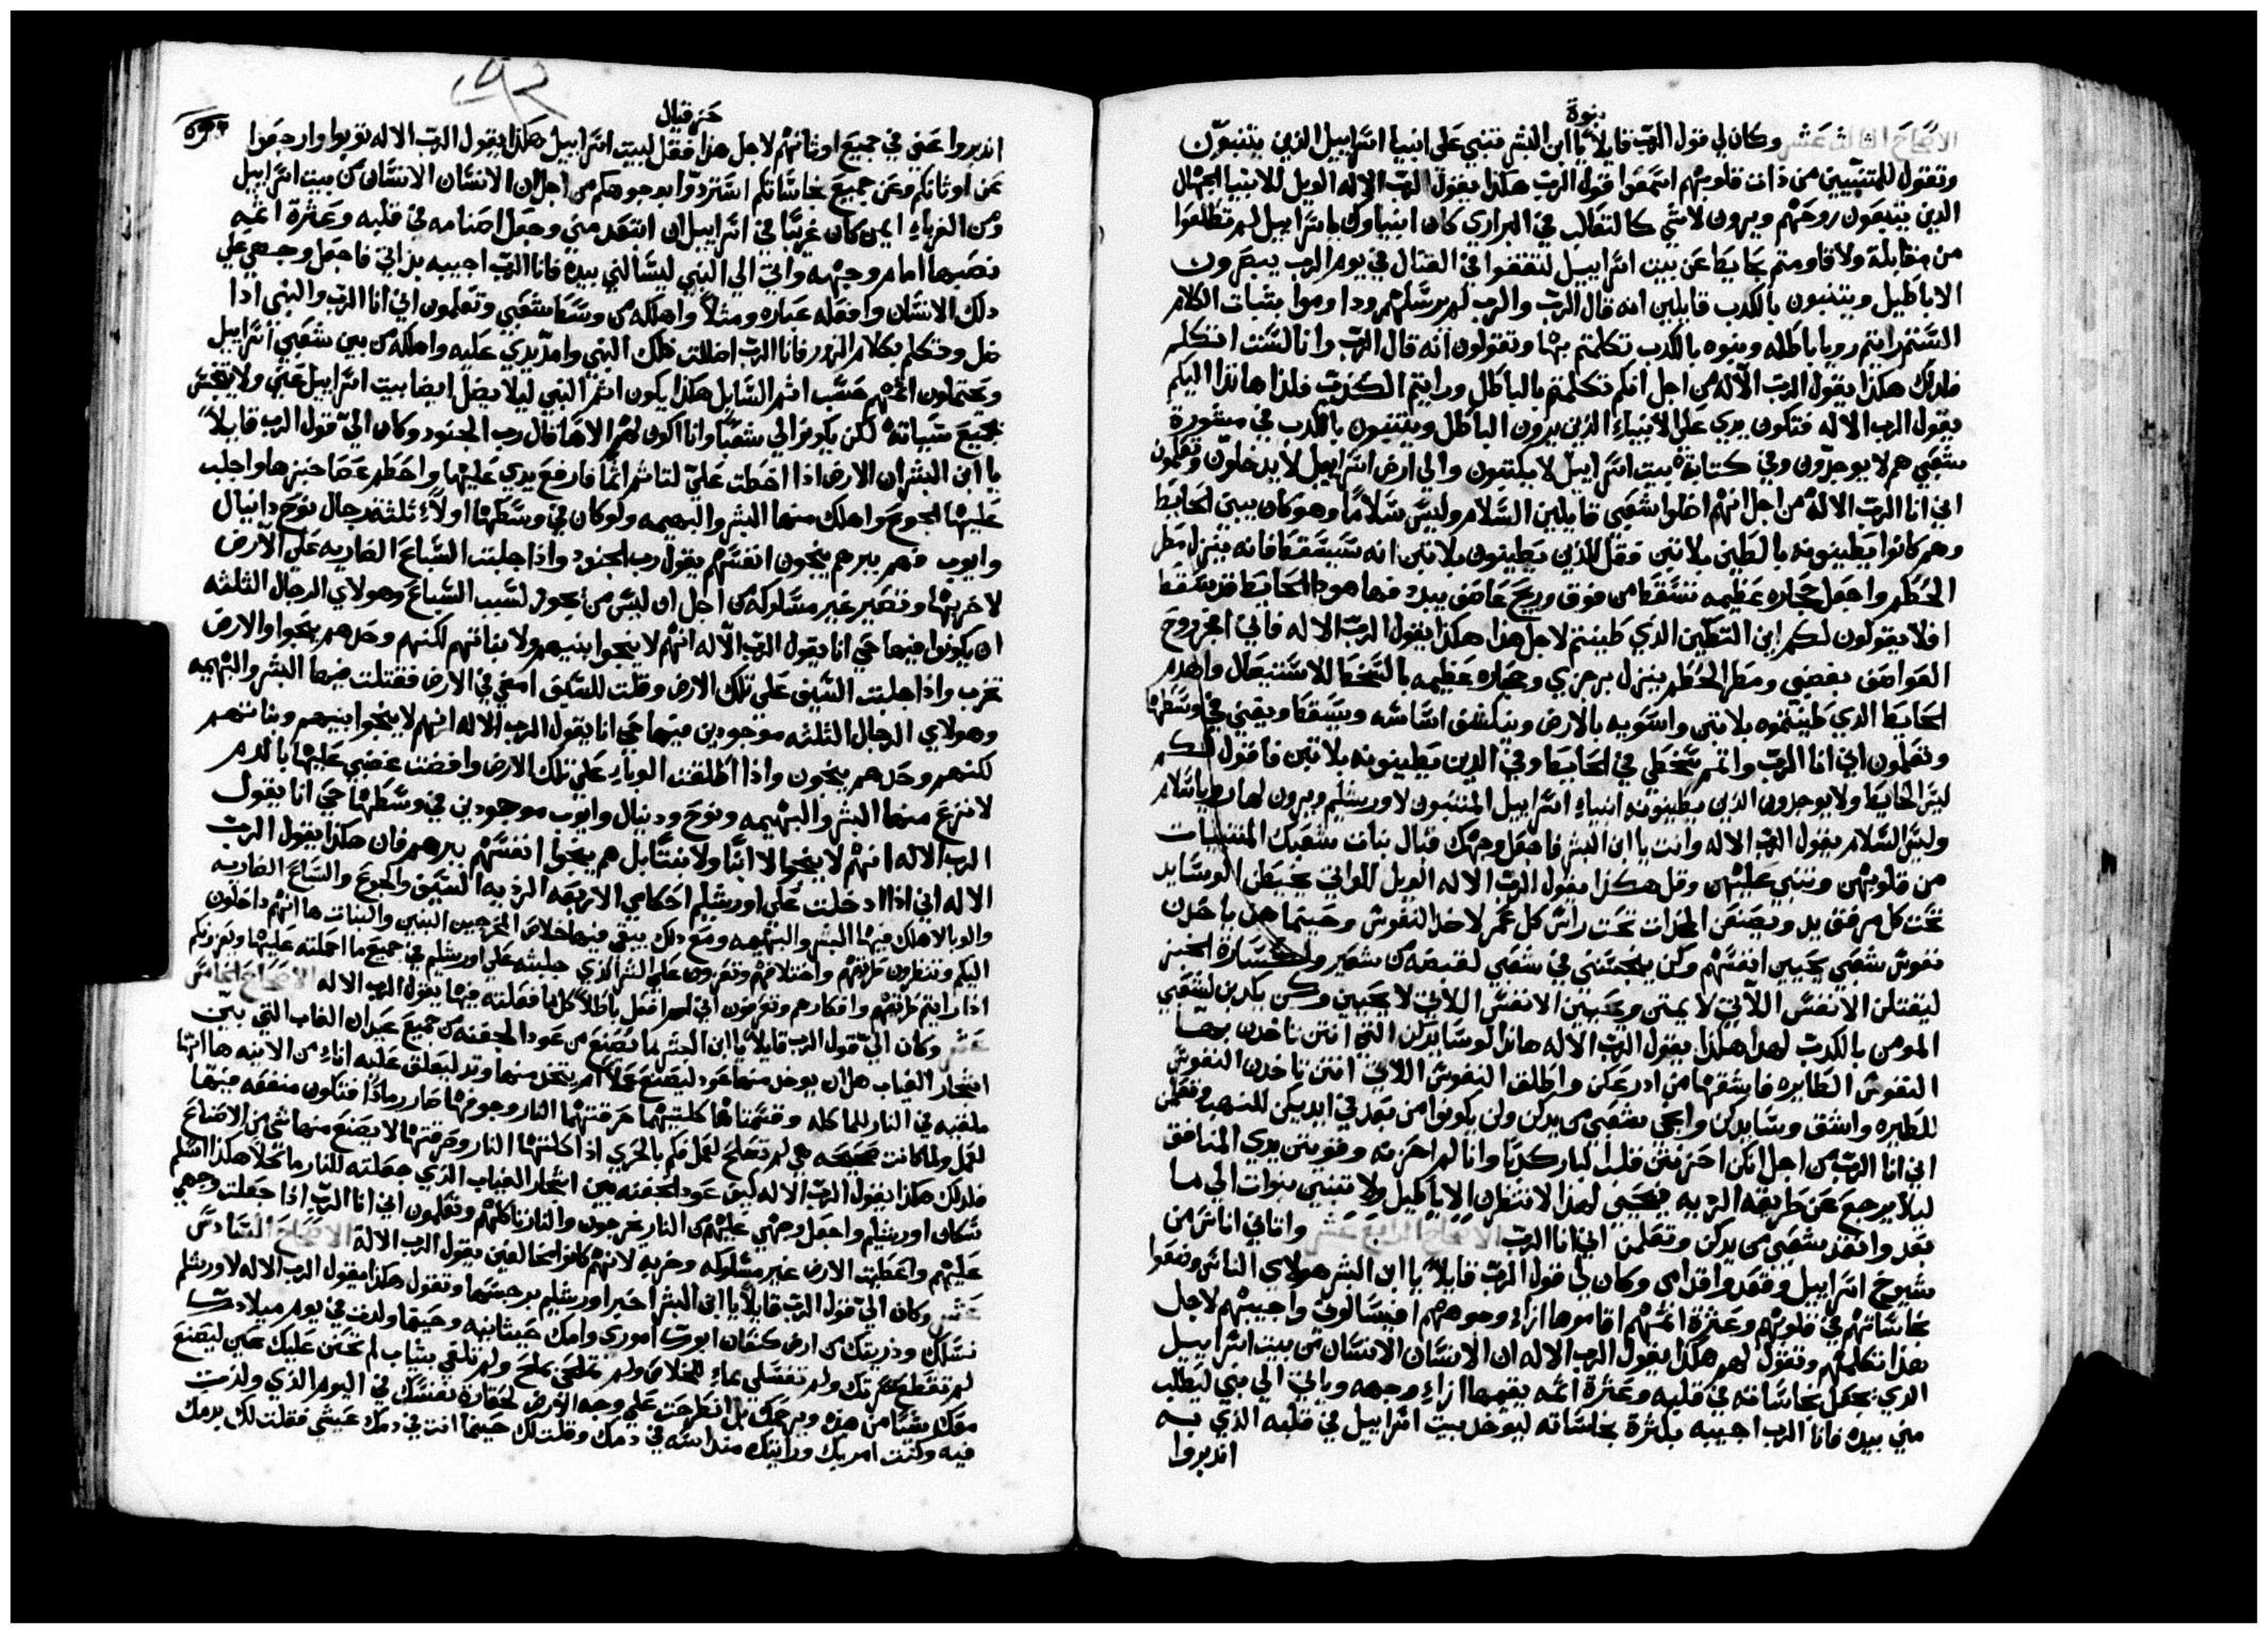 نبوة
الاصحاح الثالث عشر وكان لي قول الرب قايلاً يا ابن البشر تنبي على انبيا اسراييل الذين يتنبون
وتقول للمتنبيين من ذات قلوبهم اسمعوا قول الرب هكذا يقول الرب الاله الويل للانبيا الجهال
الذين يتبعون روحهم ويرون لاشي كالتعالب في البراري كان انبياوك يا اسراييل لم تطلعوا
من مقابلة ولا قاومتم بحايط عن بيت اسراييل لتقفوا في القتال في يوم الرب يبصرون
الاباطيل ويتنبون بالكدب قايلين انه قال الرب والرب لم يرسلهم وداوموا بتبات الكلام
الستم رايتم رويا باطله ونبوه بالكدب تكلمتم بها وتقولون انه قال الرب وانا لست اتكلم
فلدلك هكذا يقول الرب الاله من اجل انكم تكلمتم بالباطل ورايتم الكذب فلذا هاندا اليكم
يقول الرب الاله فتكون يدي على الانبياء الذين يرون الباطل ويتنبون بالكدب في مشورة
شعبي هم لا يوجدون وفي كتابة بيت اسراييل لا يكتبون والى ارض اسراييل لا يدخلون وتعلمون
اني انا الرب الاله من اجل انهم اضلوا شعبي قايلين السلام وليس سلاما وهو كان يبني الحايط
وهم كانوا يطينونه بالطين بلا تبن فقل للذين يطينون بلا تبن انه سيسقط فانه ينزل مطر
الخطم واجعل حجاره عظيمه تسقط من فوق وريح عاصف يبدد فها هودا الحايط قد سقط
افلا يقولون لكم اين التطين الذي طينتم لاجل هذا هكذا يقول الرب الاله فاني اخرج روح
العواصف بغضبي ومطر الخطم ينزل برجزي وحجاره عظيمه بالسخط للاستيصال واهدم
الحايط الدي طينتموه بلا تبن واسويه بالارض وينكشف اساسه ويسقط ويفني في وسطها
وتعلمون اني انا الرب واتمم سخطي في الحايط وفي الدين يطينونه بلا تبن فاقول لكم
ليس الحايط ولا يوجدون الذين يطينونه انبياء اسراييل المتنبون لاورشليم ويرون لها رويا سلام
وليس السلام يقول الرب الاله وانت يا ابن البشر فاجعل وجهك قبال بنات شعبك المتنبيات
من قلوبهن وتنبي عليهن وقل هكذا يقول الرب الاله الويل للواتي يخيطن الوسايد
تحت كل مرفق يد ويصنعن المخدات تحت راس كل عمر لاخد النفوس وحيتما هن ياخدن
نفوس شعبي يحيين انفسهم وكن ينجسنني في شعبي لقبضه من شعير وكسارة الخبز
ليقتلن الانفس اللاتي لا يمتن ويحيين الانفس اللاتي لا يحيين وكن يكدبن لشعبي
المومن بالكدب لهذا هكذا يقول الرب الاله هاندا لوسايدكن التي انتن تاخدن بها
النفوس الطايره فاشقها من ادرعكن واطلق النفوس اللاتي انتن تاخدن النفوس
للطيره واشق وسايدكن وانجي شعبي من يدكن ولن يكونوا من بعد في ايديكن للنهب فتعلمن
اني انا الرب من اجل انكن احزنتن قلب البار كدبا وانا لم احزنه وقويتن يدي المنافق
ليلا يرجع عن طريقه الرديه فيحيي لهدا لا تنتظرن الاباطيل ولا تتنبين نبوات الى ما
بعد وانقد شعبي من يدكن وتعلمن اني انا الرب الاصحاح الرابع عشر واتاني اناس من
شيوخ اسراييل وقعدوا قدامي وكان لي قول الرب قايلاً يا ابن البشر هولاي الناس وضعوا
نجاساتهم في قلوبهم وعثرة اثمهم اقاموها ازاء وجوههم افيسالوني واجيبهم لاجل
هذا تكلمهم وتقول لهم هكذا يقول الرب الاله ان الانسان الانسان من بيت اسراييل
الذي يجعل نجاساته في قلبه وعثرة اثمه يقيمها ازاء وجهه وياتي الى نبي ليطلب
مني بيده فانا الرب اجيبه بكثرة نجاساته ليوخد بيت اسراييل في قلبه الذي به
اندبروا
حزقيال
اندبروا عني في جميع اوثانهم لاجل هذا فقل لبيت اسراييل هكذا يقول الرب الاله توبوا وارجعوا
عن اوثانكم وعن جميع نجاساتكم استردوا بوجوهكم من اجل ان الانسان الانسان من بيت اسراييل
ومن الغرباء ايمن كان غريبا في اسراييل ان ابتعد مني وجعل اصنامه في قلبه وعثرة اثمه
نصبها امام وجهه واتى الى النبي ليسالني بيده فانا الرب اجيبه بذاتي فاجعل وجهي على
دلك الانسان وافعله عباره ومثلاً واهلكه من وسط شعبي وتعلمون اني انا الرب والنبي ادا
ضل وتكلم بكلام الزور فانا الرب اضللت ذلك النبي وامد يدي عليه واهلكه من بين شعبي اسراييل
ويحتملون اثمهم حسب اثم السايل هكذا يكون اثم النبي ليلا يضل ايضا بيت اسراييل عني ولا يتنجس
بجميع سياته لكن يكونوا لي شعبا وانا اكون لهم الاها قال رب الجنود وكان الي قول الرب قايلاً
يا ابن البشر ان الارض اذا اخطت علي لتاثم اثما فارفع يدي عليها واحطم عصا خبزها واجلب
عليها الجوع واهلك منها البشر والبهيمه ولو كان في وسطها اولاء ثلثة رجال نوح دانيال
وايوب فهم ببرهم ينجون انفسهم يقول رب الجنود واذا جلبت السباع الضاريه على الارض
لاخربها وتصير غير مسلوكه من اجل ان ليس من يجوز لسبب السباع وهولاي الرجال الثلثه
ان يكونوا فيها حي انا يقول الرب الاله انهم لا ينجوا بنيهم ولا بناتهم لكنهم وحدهم ينجوا والارض
تخرب واذا جلبت السيف على تلك الارض وقلت للسيف امضي في الارض فقتلت منها البشر والبهيمه
وهولاي الرجال الثلثه موجودين فيها حي انا يقول الرب الاله انهم لا ينجوا بنيهم وبناتهم
لكنهم وحدهم ينجون واذا اطلقت الوباء على تلك الارض وافضت غضبي عليها بالدم
لانزع منها البشر والبهيمه ونوح ودنيال وايوب موجودين في وسطها حي انا يقول
الرب الاله انهم لا ينجوا لا ابنا ولا بنتا بل هم ينجوا انفسهم ببرهم فان هكذا يقول الرب
الاله اني اذا ادخلت على اورشليم احكامي الاربعه الرديه السيف والجوع والسباع الضاريه
والوبا لاهلك منها البشر والبهيمه ومع دلك يبقي فيها خلاص المخرجين البنين والبنات ها انهم داخلون
اليكم وتنظرون طرقهم واختلاقهم وتعزون على الشر الذي جلبته على اورشليم في جميع ما احملته عليها ويعزونكم
اذا رايتم طرقهم وافكارهم وتعرفون اني لم افعل باطلاً كل ما فعلته فيها يقول الرب الاله الاصحاح الخامس
عشر وكان الي قول الرب قايلاً يا ابن البشر ما يصنع من عود الجفنه من جميع عيدان الغاب التي بين
اشجار الغياب هل ان يوخد منها عود ليصنع عملاً ام يتخد منها وتد ليعلق عليه اناء من الانيه ها انها
ملقيه في النار للماكله وقسمتاها كلتيهما حرقتهما النار وجوفها صار رمادًا فتكون منفعه فيها
لعمل ولما كانت صحيحه هي لم تصلح لعمل فكم بالحري اذا اكلتها النار وحرقتها لا يصنع منها شي من الاصناع
فلدلك هكذا يقول الرب الاله كيف عود الجفنه بين اشجار الغياب الذي جعلته للنار ماكلاً هكذا اسلم
سكان اورشليم واجعل وجهي عليهم من النار يخرجون والنار تاكلهم وتعلمون اني انا الرب اذا جعلت وجهي
عليهم واعطيت الارض غير مسلوكه وخربه لانهم كانوا مخالفين يقول الرب الاله الاصحاح السادس
عشر وكان الي قول الرب قايلاً يا ابن البشر اخبر اورشليم برجستها وتقول هكذا يقول الرب الاله لاورشليم
نسلك وذريتك من ارض كنعان ابوك اموري وامك حيثانيه وحيتما ولدت في يوم ميلادك
لم تقطع سرتك ولم تغسلي بماء للخلاص ولم تملحي بملح ولم تلفي بثياب لم تحنن عليك عين ليصنع
معك شيئا من هده ويرحمك بل انطرحت على وجه الارض لحقارة نفسك في اليوم الذي ولدت
فيه وكنت امر بك ورايتك منداسه في دمك وقلت لك حيتما انت في دمك عيشي فقلت لك بدمك